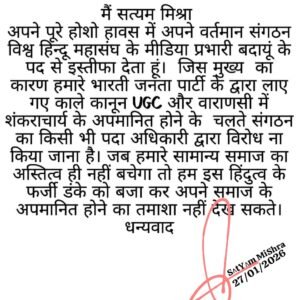 मैं सत्यम मिश्रा
अपने पूरे होशो हावस में अपने वर्तमान संगठन
विश्व हिन्दू महासंघ के मीडिया प्रभारी बदायूं के
पद से इस्तीफा देता हूं। जिस मुख्य का
कारण हमारे भारती जनता पार्टी के द्वारा लाए
गए काले कानून UGC और वाराणसी में
शंकराचार्य के अपमानित होने के चलते संगठन
का किसी भी पदा अधिकारी द्वारा विरोध ना
किया जाना है। जब हमारे सामान्य समाज का
अस्तित्व ही नहीं बचेगा तो हम इस हिंदुत्व के
फर्जी डंके को बजा कर अपने समाज के
अपमानित होने का तमाशा नहीं देख सकते।
धन्यवाद
SatYam MiShra
27/01/2026